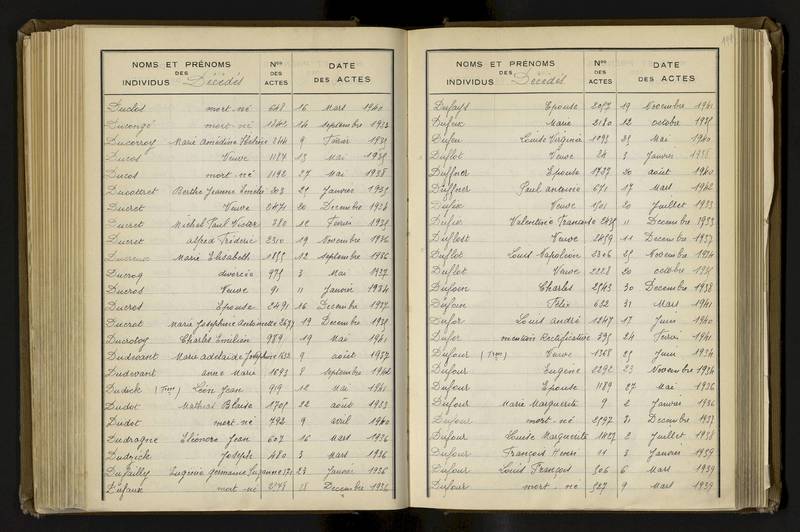 NOMS ET PRÉNOMS DES INDIVIDUS Décédés Nos DES ACTES DATE DES ACTES
Duclos mort-né 648 16 Mars 1940
Ducongé mort-né 14 septembre 1933
Ducorroy Marie Amédine 244 9 Février
Ducos Veuve 1187 13 Mai
Ducos mort-né 1192 27 Mai 1938
Ducottret Berthe Jeanne 203 Janvier
Ducret Veuve 2471 20 Décembre
Ducret Michel Paul Victor 380 12 Février
Ducret Alfred Fréderic 2310 19 Novembre 1936
Marie Elisabeth 12 septembre 1936
Ducrocq divorcée 975 3 Mai 1937
Ducros Veuve 91 11 Janvier 1934
Ducros Epouse 2491 16 Décembre 1937
Ducrot Marie Joséphine Antoinette 19 Décembre
Ducrotoy Charles Emilien 989 19 Mai 1941
Dudevant Marie adelaïde Joséphine 9 août 1937
Dudevant anne Marie 1693 8 septembre
Dudick (Tme) Léon Jean 919 12 Mai 1941
Dudot Mathias Blaise 1705 22 août 1933
Dudot mort-né 792 9 avril 1940
Dudragne Eléonore Jean 607 16 Mars 1936
Dudzick Joseph 480 3 Mars 1936
Dufailly Eugénie Germaine Suzanne 23 Janvier 1936
Dufaux mort-né 18 Décembre 1936
NOMS ET PRÉNOMS DES INDIVIDUS Décédés Nos DES ACTES DATE DES ACTES
Dufays Epouse 2057 19 Novembre 1941
Marie 2180 12 octobre
Dufeu Louise Virginie 1093 Mai 1940
Duflot Veuve 24 3 Janvier 1938
Duffner Epouse 1737 20 août 1940
Duffner Paul antoine 671 17 Mars 1942
Dufix Veuve 20 Juillet 1933
Dufix Valentine Françoise 11 Décembre 1933
Duflost Veuve 2459 11 Décembre 1937
Duflot Louis Napoléon 2306 Novembre 1934
Duflot Veuve 2228 20 octobre
Dufoin Charles 2543 30 Décembre 1938
Dufoin Félix 632 31 Mars 1941
Dufor Louis André 1247 17 Juin 1940
Dufor mention Rectificative 395 24 Février 1941
Dufour (Tme) Veuve 1368 25 Juin 1934
Dufour Eugène 2292 23 Novembre 1934
Dufour Epouse 1189 27 Mai 1936
Dufour Marie Marguerite 9 2 Janvier 1936
Dufour mort-né 2597 31 Décembre 1937
Dufour Louise Marguerite 1427 2 Juillet 1938
Dufour François Henri 11 3 Janvier 1939
Dufour Louis François 506 6 Mars 1939
Dufour mort-né 527 9 Mars 1939